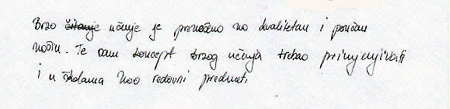 Brzo čitanje učenje je prenošeno na kvalitetan i poučan
način. Te sam koncept brzog učenja trebao primjenjivati
i u školama kao redovni predmet